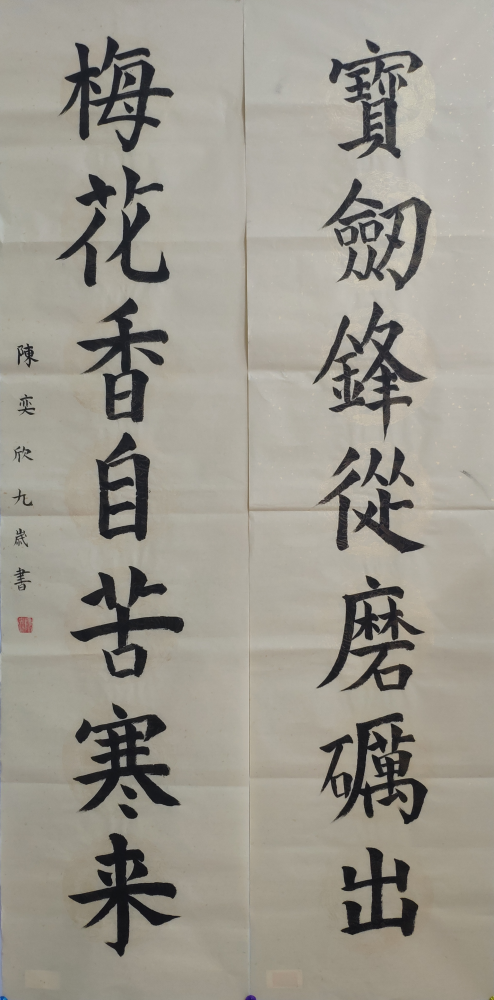 寶劒鋒從磨礪出
梅花香自苦寒来
陳奕欣九歲書